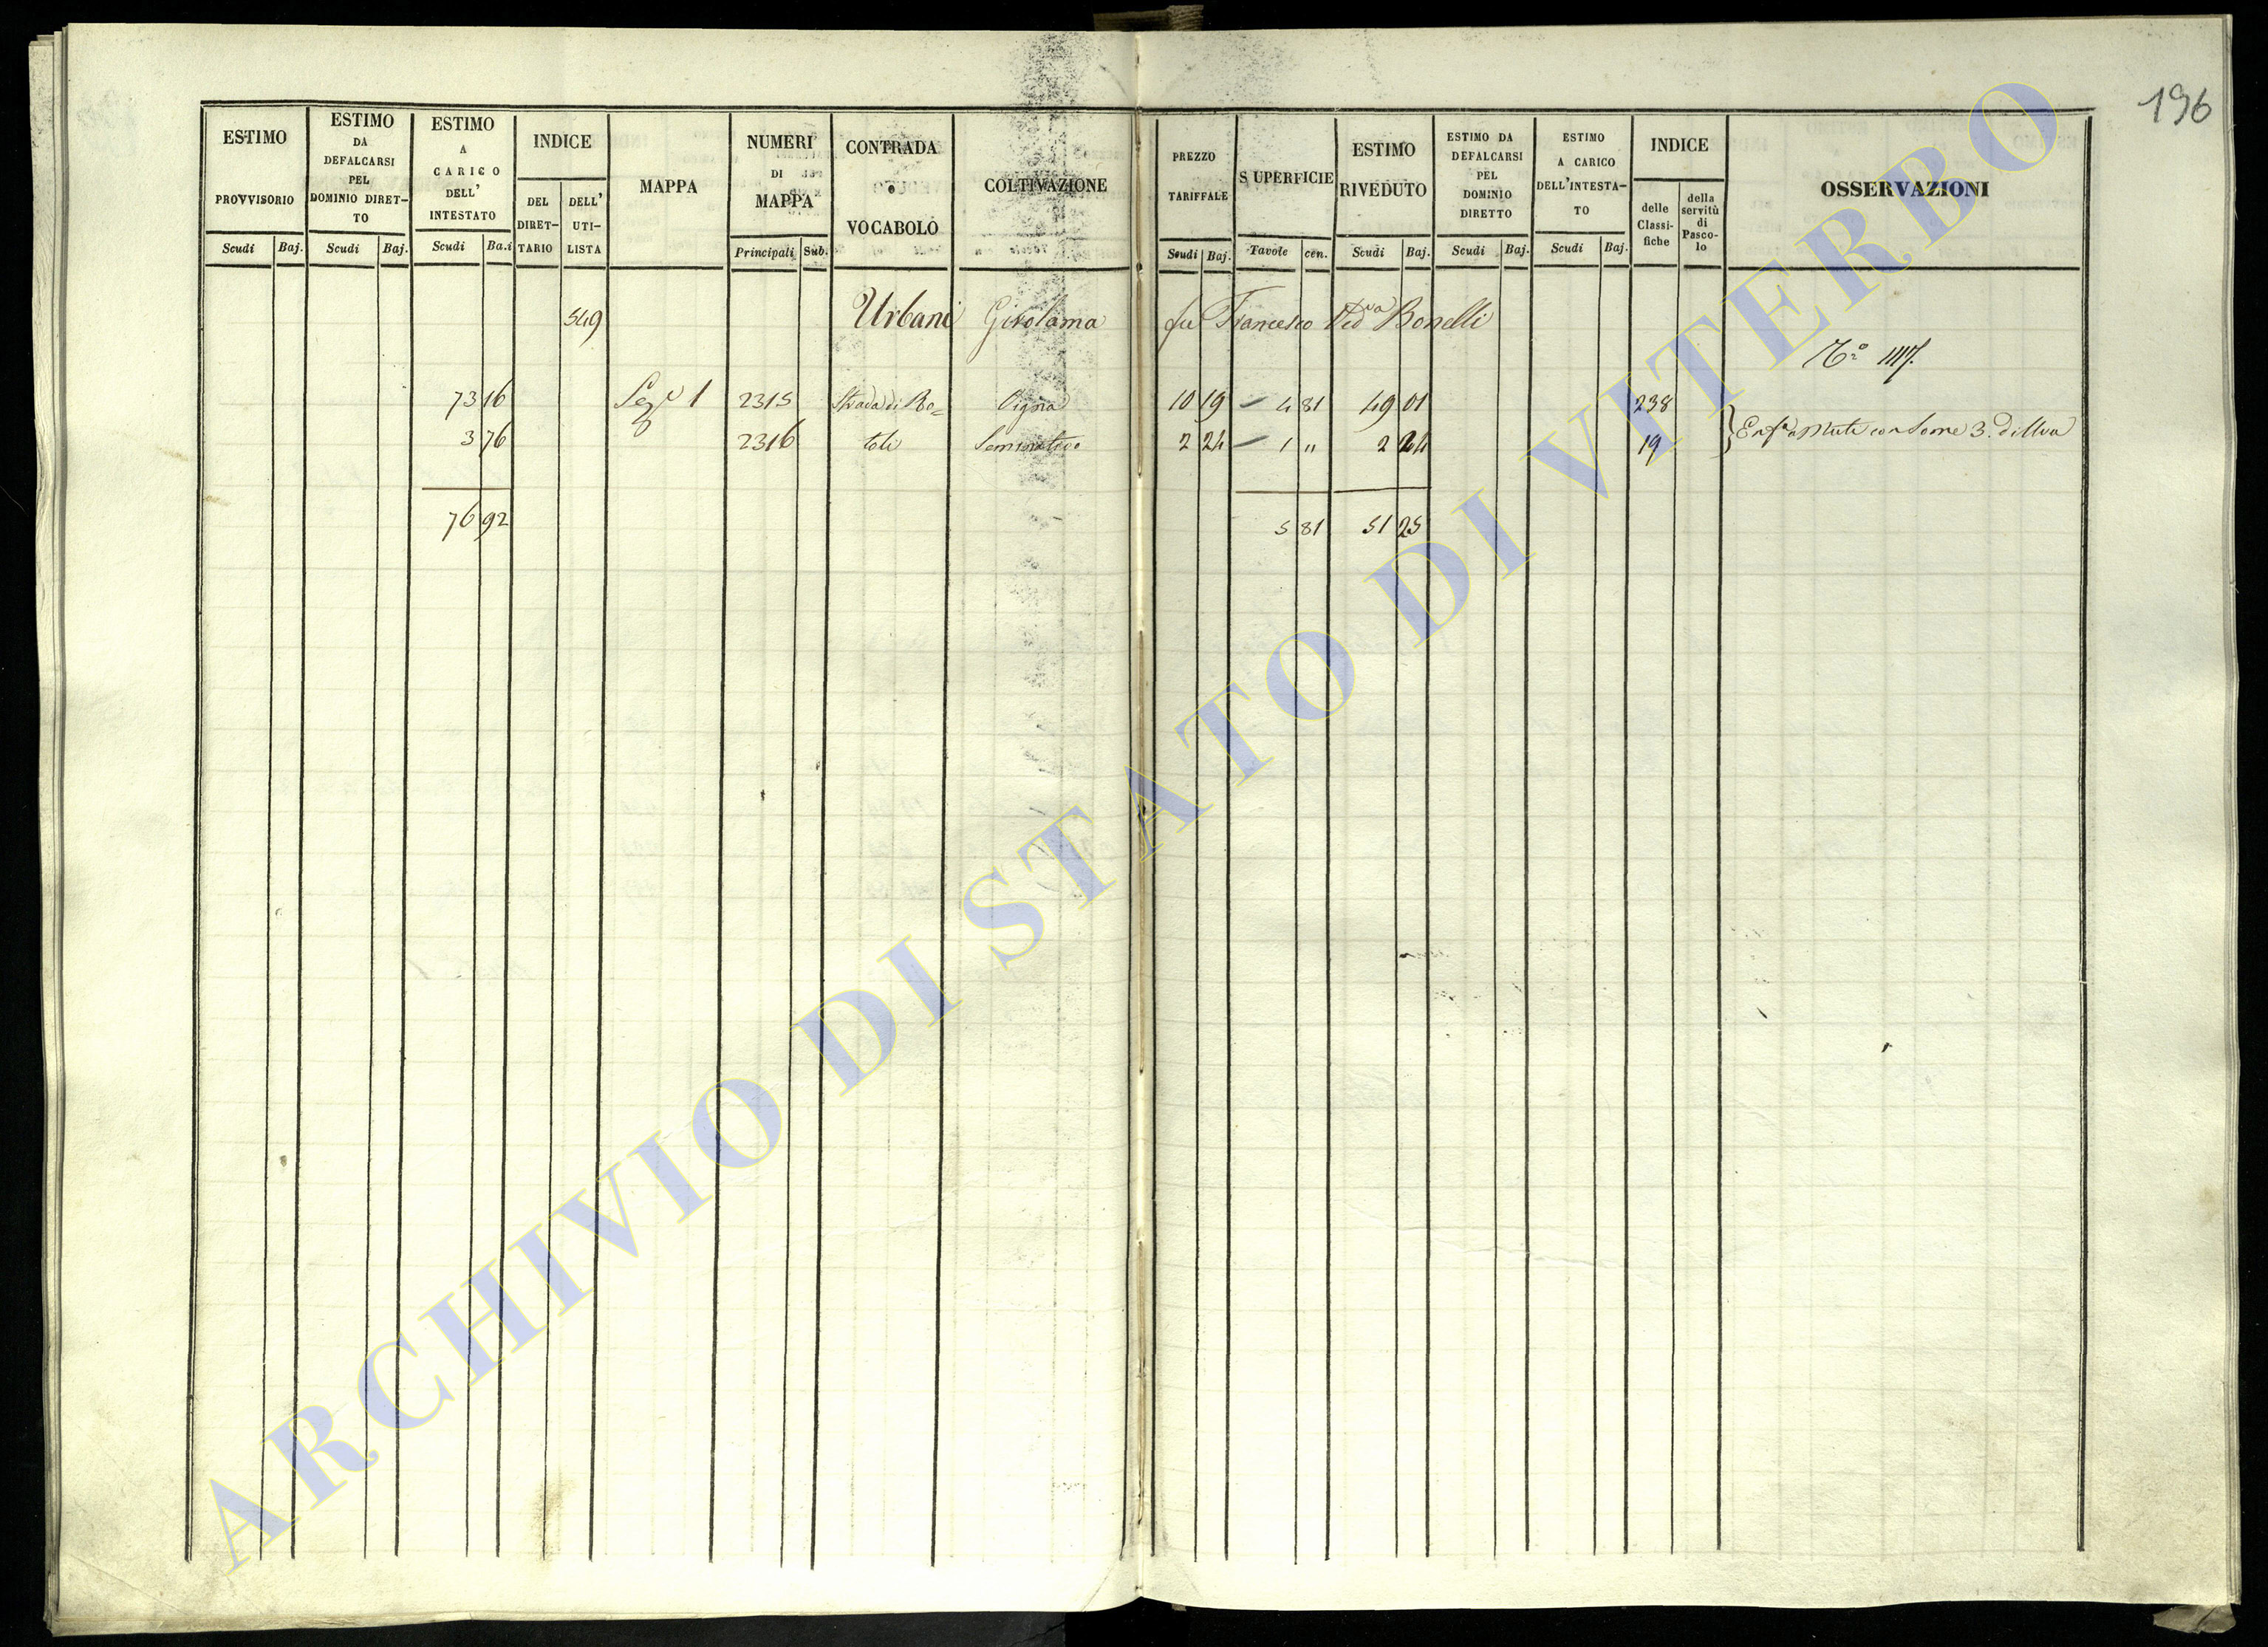 196
ESTIMO PROVVISORIO
ESTIMO DA DEFALCARSI PEL DOMINIO DIRETTO
ESTIMO A CARICO DELL' INTESTATO
INDICE
DEL DIRETTARIO
DELL' UTILISTA
MAPPA
NUMERI DI MAPPA
CONTRADA o VOCABOLO
COLTIVAZIONE
PREZZO TARIFFALE
SUPERFICIE
ESTIMO RIVEDUTO
ESTIMO DA DEFALCARSI PEL DOMINIO DIRETTO
ESTIMO A CARICO DELL'INTESTATO
INDICE
delle Classifiche
della servitù di Pascolo
OSSERVAZIONI
Scudi Baj. Scudi Baj. Scudi Ba.i Principali Sub. Scudi Baj. Tavole cen. Scudi Baj. Scudi Baj. Scudi Baj.
549 Urbani Girolama fu Francesco Ved.va Bonelli
73 16 Sez.e 1 2315 Strada di Bo= Vigna 10 19 4 81 49 01 238
3 76 2316 Seminativo 2 24 1 " 2 24 19
76 92 5 81 51 25
ARCHIVIO DI STATO DI VITERBO